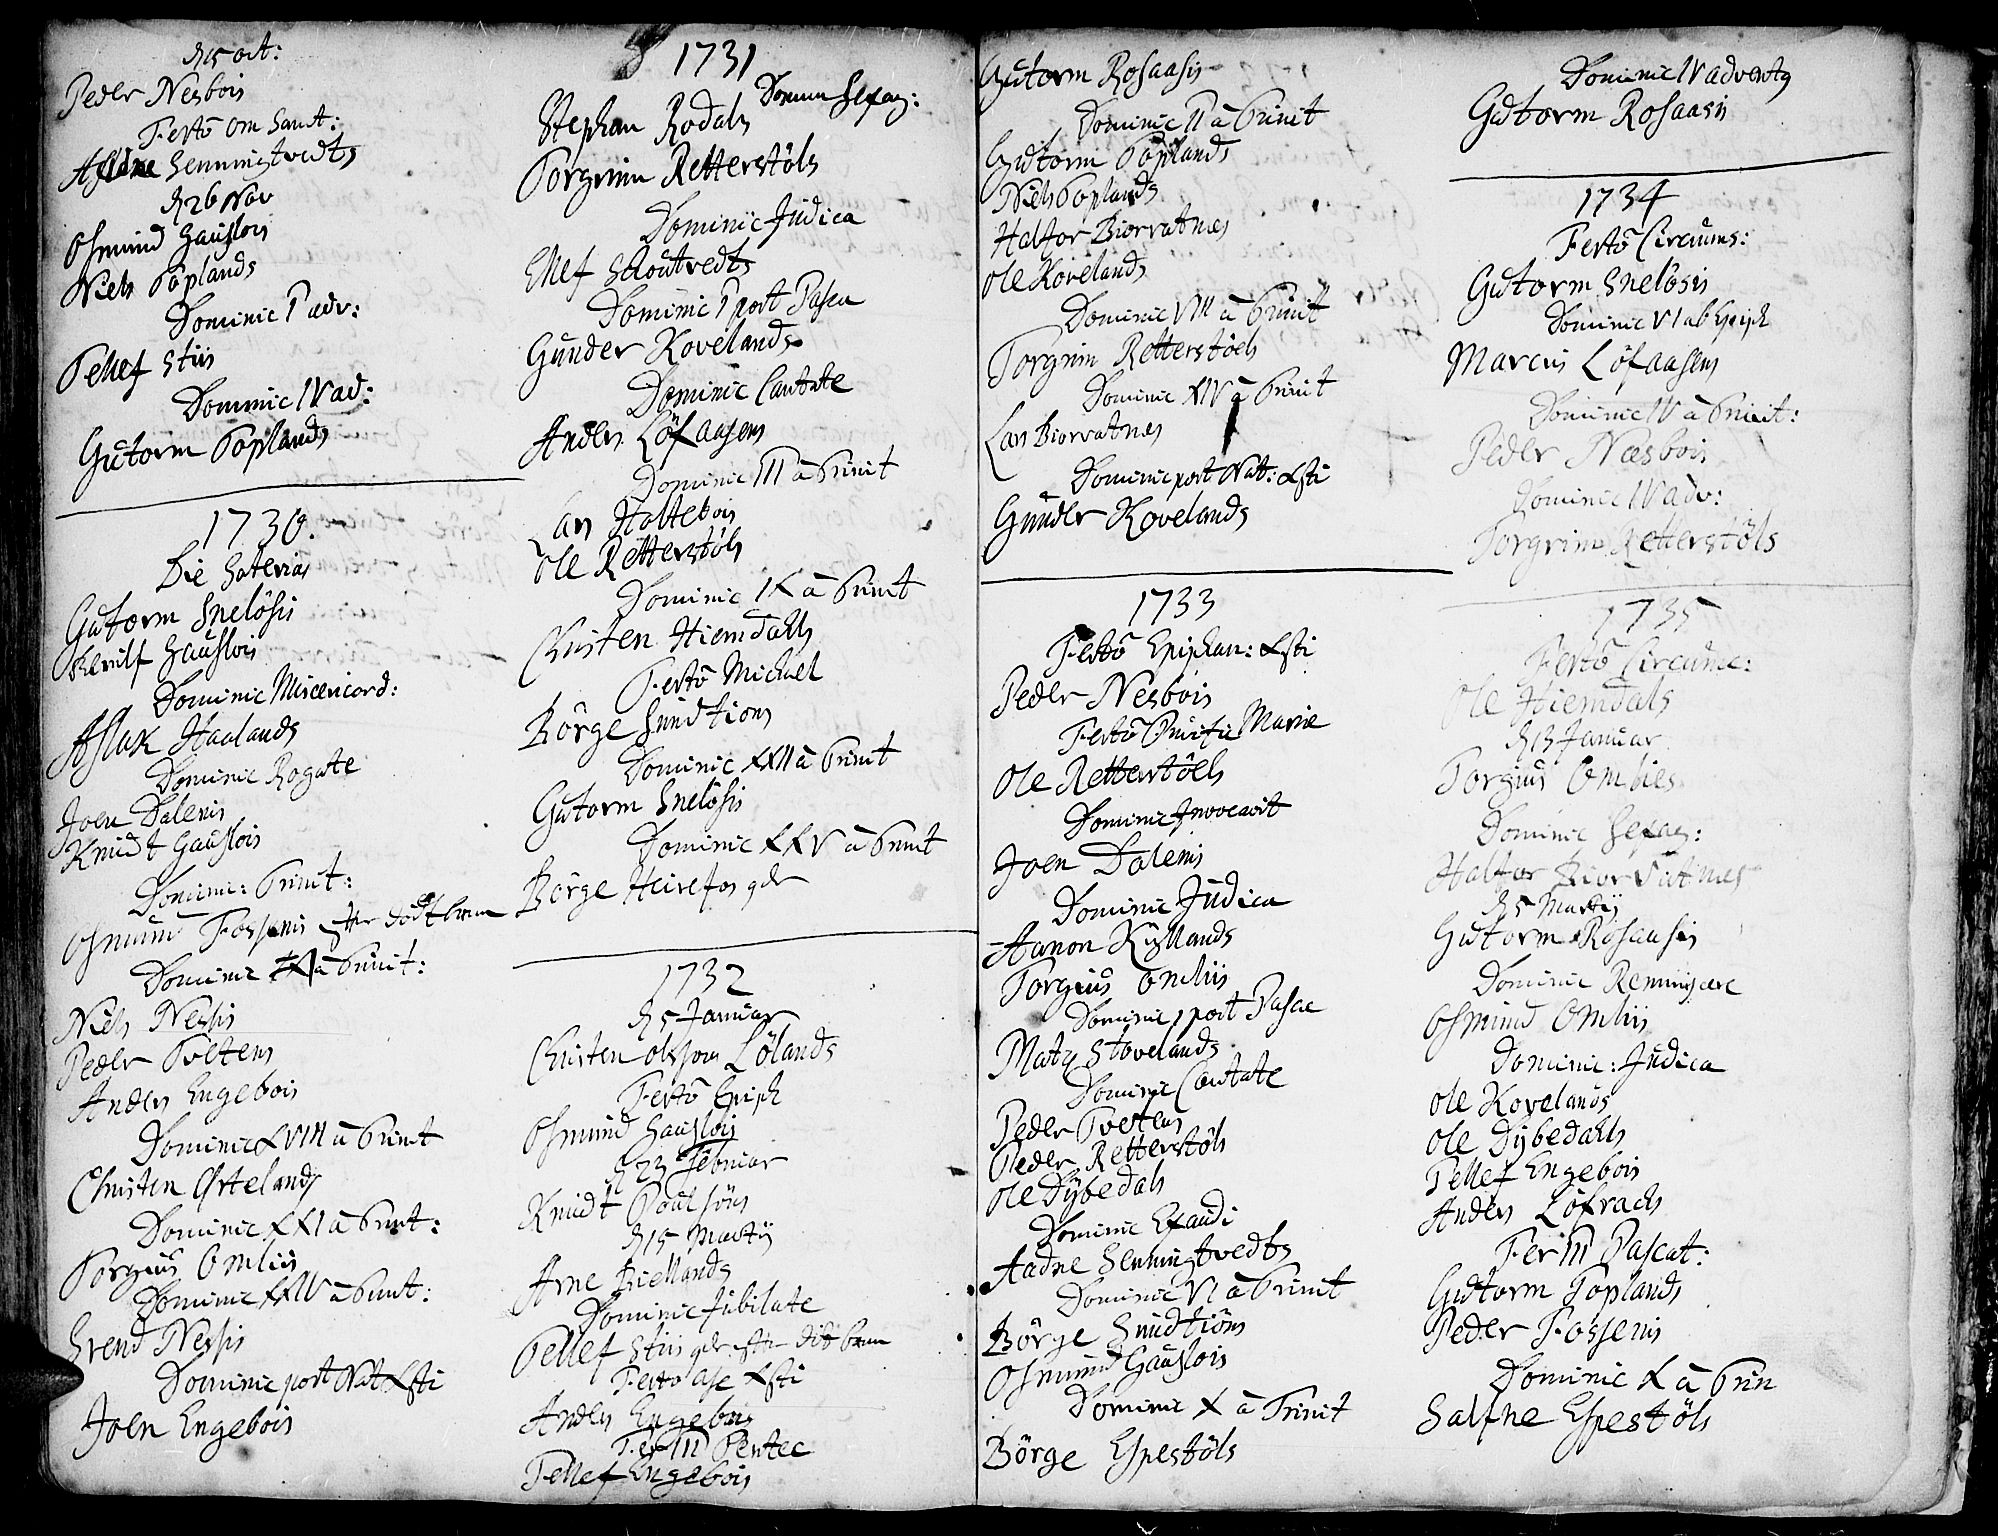 d 15 oct:
Peder Nesbois
Festo om Sanct:
Senningtvedts
d 26 Nov
Osmund Gauslois
Niels Toplands
Dominic 1 adv:
Tellef Stiis
Dominic IV ad:
Gutorm Toplands
1730.
Die
Gutorm Sneløsis
Gauslois
Dominic Misericord:
Aslak Haalands
Dominic Rogate
Joen Dalenis
Knudt Gauslois
Dominic: Trinit:
Osmund Fossenis
Dominic à Trinit:
Niels Nessis
Peder Tvetens
Anders Engebois
Dominic XVIII à Trinit
Christen Ørtelands
Dominic XXI à Trinit:
Torgius Omliis
Dominic XXIV à Trinit:
Svend Nessis
Dominic post Nat Xsti
Joen Engebois
1731
Domin Sexag:
Stephan Rødals
Torgrim Retterstøls
Dominic Judica
Ellef Stoutvedts
Dominic 1 post Pasca
Gunder Kovelands
Dominic Cantate
Anders Løfaasens
Dominic III à Trinit
Lars Holtebois
Ole Retterstøls
Dominic IX à Trinit
Christen Hiemdahls
Festo Michael
Børge Sundtions
Dominic XXII à Trinit
Gutorm Sneløsis
Dominic XXV à Trinit
Børge Heirefos gdr
1732
d 5 Januar
Christen olsøns Lølands
Festo Epiph
Osmund Gauslois
d 23 Februar
Knudt Poulsøns
d 15 Martij
Arne Biellands
Dominic Jubilate
Tellef Stiis gdr
Festo Asc Xsti
Anders Engebois
Fer III Pentec
Tellef Engebois
Gutorm Rosaasis
Dominic II à Trinit
Gutorm Toplands
Niels Toplands
Halfor Biorvatnes
Ole Kovelands
Dominic VIII à Trinit
Torgrim Retterstøels
Dominic XIV à Trinit
Lars Biorvatnes
Dominic post Nat: Xsti
Gunder Kovelands
1733
Festo Epiphan: Xsti
Peder Nesbois
Festo Purific Mariæ
Ole Retterstøels
Dominic Invocavit
Joen Dalenis
Dominic Judica
Aanon Kysllands
Torgius Omliis
Dominic 1 post Pascæ
Mats Stovelands
Dominic Cantate
Peder Tvetens
Peder Retterstøls
Ole Dybedals
Dominic Exaudi
Aadne Senningtvedts
Dominic VI à Trinit
Børge Sundtiøns
Osmund Gauslois
Dominic X à Trinit
Børge Espestøls
Dominic IV advents
Gutorm Rosaasis
1734
Festo Circums:
Gutorm Sneløsis
Dominic VI ab Epiph
Marcus Løfaasens
Dominic IV à Trinit:
Peder Næsbois
Dominic IV adv:
Torgrim Retterstøls
1735
Festo Circumc:
Ole Hiemdals
d 13 Januar
Torgius Omlies
Dominic Sexag:
Halfor Biorvatnes
d 5 Martij
Gutorm Rosaasis
Dominic Reminiscere
Osmund Omliis
Dominic: Judica
Ole Kovelands
Ole Dybedahls
Tellef Engebois
Anders Løfrachs
Fer III Pascat:
Gutorm Toplands
Peder Fossenis
Dominic X à Trin
Salfve Espestøls